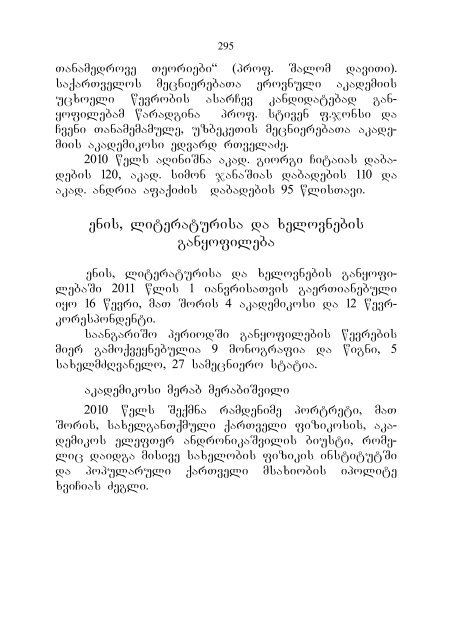 295
თანამედროვე თეორიები“ (პროფ. შალომ დავითი).
საქართველოს მეცნიერებათა ეროვნული აკადემიის
უცხოელი წევრობის ასარჩევ კანდიდატებად გან-
ყოფილებამ წარადგინა პროფ. სტივენ ფ.ჯონსი და
ჩვენი თანამემამულე, უზბეკეთის მეცნიერებათა აკადე-
მიის აკადემიკოსი ედვარდ რთველაძე.
2010 წელს აღინიშნა აკად. გიორგი ჩიტაიას დაბა-
დების 120, აკად. სიმონ ჯანაშიას დაბადების 110 და
აკად. ანდრია აფაქიძის დაბადების 95 წლისთავი.
ენის, ლიტერატურისა და ხელოვნების
განყოფილება
ენის, ლიტერატურისა და ხელოვნების განყოფი-
ლებაში 2011 წლის 1 იანვრისათვის გაერთიანებული
იყო 16 წევრი, მათ შორის 4 აკადემიკოსი და 12 წევრ-
კორესპონდენტი.
საანგარიშო პერიოდში განყოფილების წევრების
მიერ გამოქვეყნებულია 9 მონოგრაფია და წიგნი, 5
სახელმძღვანელო, 27 სამეცნიერო სტატია.
აკადემიკოსი მერაბ მერაბიშვილი
2010 წელს შექმნა რამდენიმე პორტრეტი, მათ
შორის, სახელგანთქმული ქართველი ფიზიკოსის, აკა-
დემიკოს ელეფთერ ანდრონიკაშვილის ბიუსტი, რომე-
ლიც დაიდგა მისივე სახელობის ფიზიკის ინსტიტუტში
და პოპულარული ქართველი მსახიობის იპოლიტე
ხვიჩიას ძეგლი.